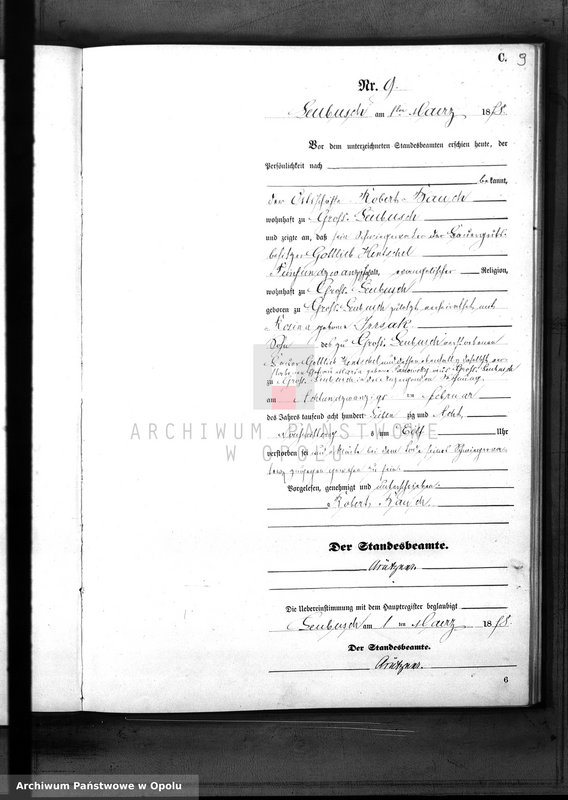 C. 9
Nr. 9.
Leubusch am 1ten März 1878.
Vor dem unterzeichneten Standesbeamten erschien heute, der
Persönlichkeit nach
bekannt,
der Robert Rausch
wohnhaft zu Groß Leubusch
und zeigte an, daß sein Schwiegervater der Bauerguts-
besitzer Gottlieb Hentschel
alt, evangelischer Religion,
wohnhaft zu Groß Leubusch
geboren zu Groß Leubusch zuletzt verheirathet mit
Rosina geborne
Sohn des zu Groß Leubusch verstorbenen
Bauer Gottlieb Hentschel und
Maria geborne aus Groß Leubusch
zu Groß Leubusch in der
am Achtundzwanzigsten Februar
des Jahres tausend acht hundert siebenzig und Acht,
Vormittag s um Elf Uhr
verstorben sei und bei dem Tode seines Schwiegerva-
ters zugegen gewesen zu sein
Vorgelesen, genehmigt und unterschrieben
Robert Rausch.
Der Standesbeamte.
Die Uebereinstimmung mit dem Hauptregister beglaubigt
Leubusch am 1 ten März 1878.
Der Standesbeamte.
6
ARCHIWUM PAŃSTWOWE
W OPOLU
Archiwum Państwowe w Opolu